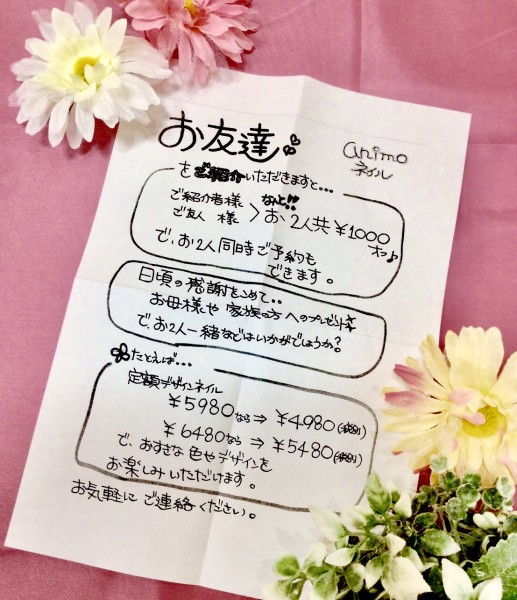 お友達
animo
ネイル
をご紹介いただきますと...
なんと!!
ご紹介者様
ご友人 様 > お2人共 ¥1000
オフ♪
で、お2人同時ご予約も
できます。
日頃の感謝をこめて..
お母様や家族の方へのプレゼント
で、お2人一緒などはいかがでしょうか?
たとえば...
定額デザインネイル
¥5980なら⇒ ¥4980(税別)
¥6480なら ⇒ ¥5480(税別)
で、おすきな色やデザインを
お楽しみいただけます。
お気軽にご連絡ください。